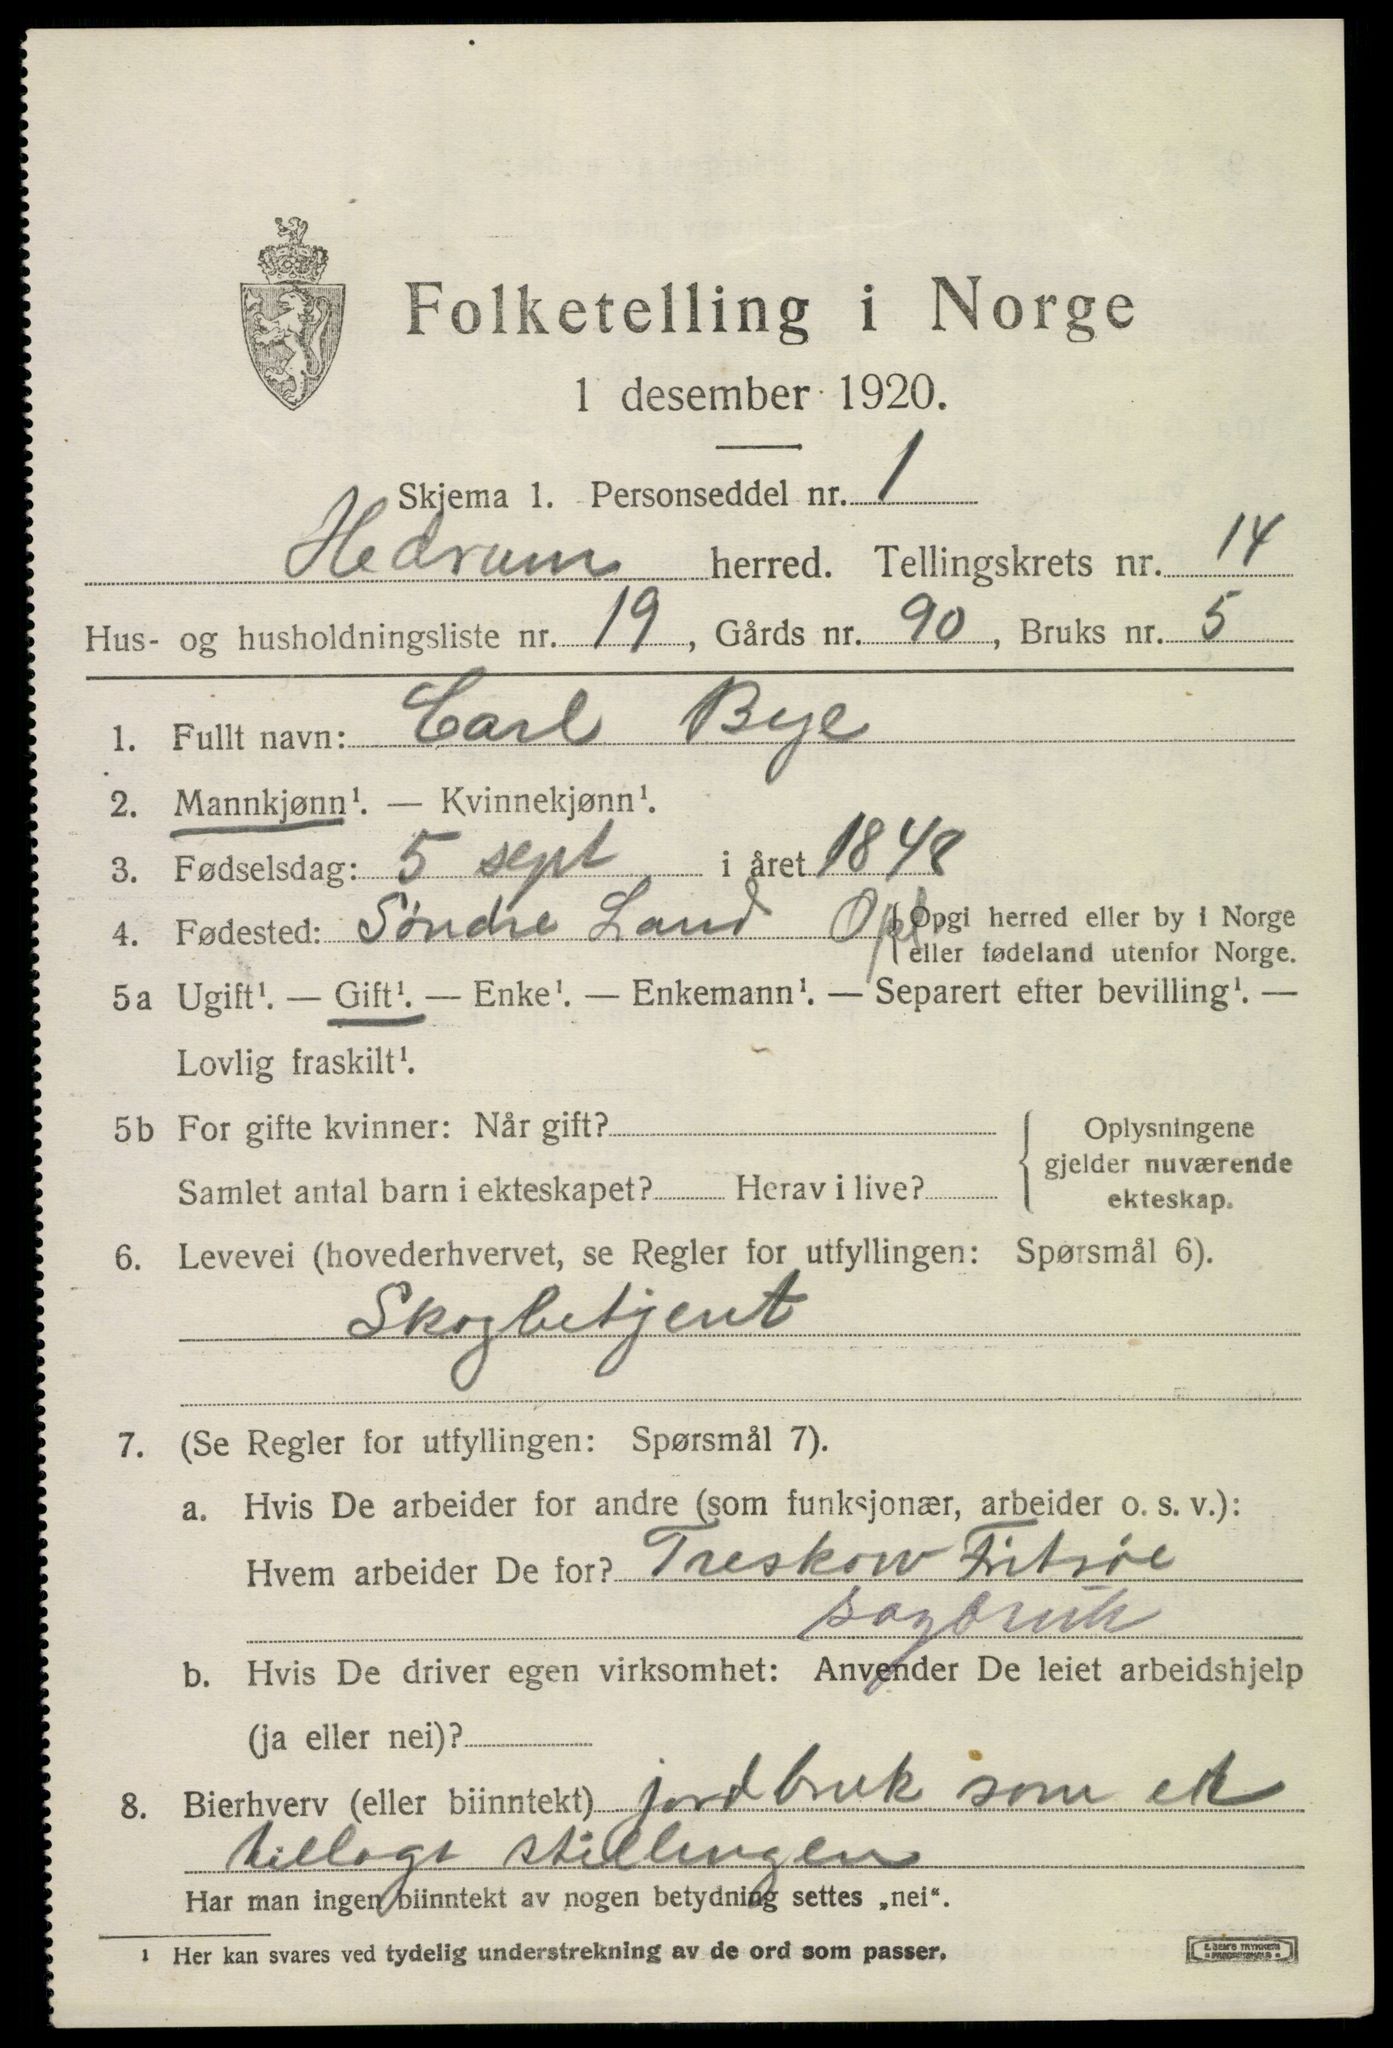 Folketelling i Norge
1 desember 1920.
Skjema 1. Personseddel nr. 1
Hedrum herred. Tellingskrets nr. 14
Hus- og husholdningsliste nr. 19, Gårds nr. 90, Bruks nr. 5
1. Fullt navn: Carl Bye
2. Mannkjønn¹. — Kvinnekjønn¹.
3. Fødselsdag: 5 sept i året 1848
4. Fødested: Søndre Land Opl { Opgi herred eller by i Norge
eller fødeland utenfor Norge.
5a Ugift¹. — Gift¹. — Enke¹. — Enkemann¹. — Separert efter bevilling¹. —
Lovlig fraskilt¹.
5b For gifte kvinner: Når gift?
Samlet antal barn i ekteskapet? Herav i live?
{ Oplysningene
gjelder nuværende
ekteskap.
6. Levevei (hovederhvervet, se Regler for utfyllingen: Spørsmål 6).
Skogbetjent
7. (Se Regler for utfyllingen: Spørsmål 7).
a. Hvis De arbeider for andre (som funksjonær, arbeider o. s. v.):
Hvem arbeider De for? Treskow Fritsøe
sagbruk
b. Hvis De driver egen virksomhet: Anvender De leiet arbeidshjelp
(ja eller nei)?
8. Bierhverv (eller biinntekt) jordbruk som et
tillegt stillingen
Har man ingen biinntekt av nogen betydning settes „nei“.
¹ Her kan svares ved tydelig understrekning av de ord som passer.